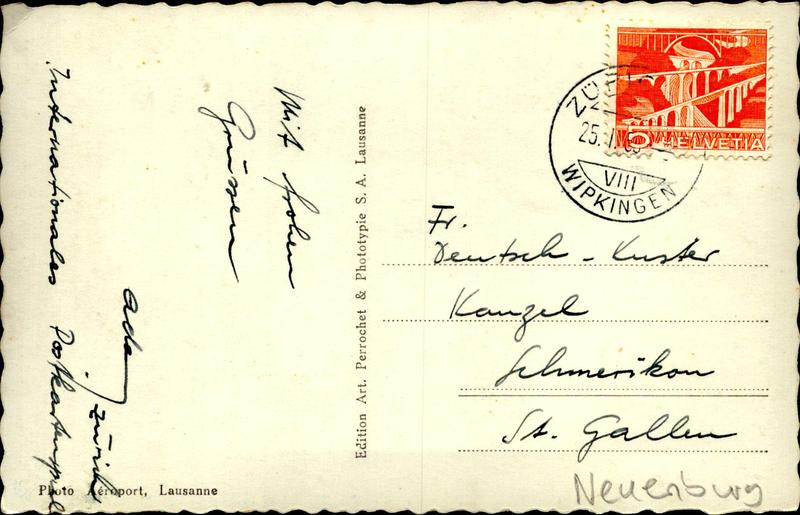 Internationales Postkartenspiel
Mit frohen
Grüssen
Ada, Zürich
Photo Aéroport, Lausanne
Edition Art. Perrochet & Phototypie S. A. Lausanne
5 HELVETIA
ZÜRICH
25.
VIII
WIPKINGEN
Fr.
Deutsch-Kuster
Kanzel
Schmerikon
St. Gallen
Neuenburg